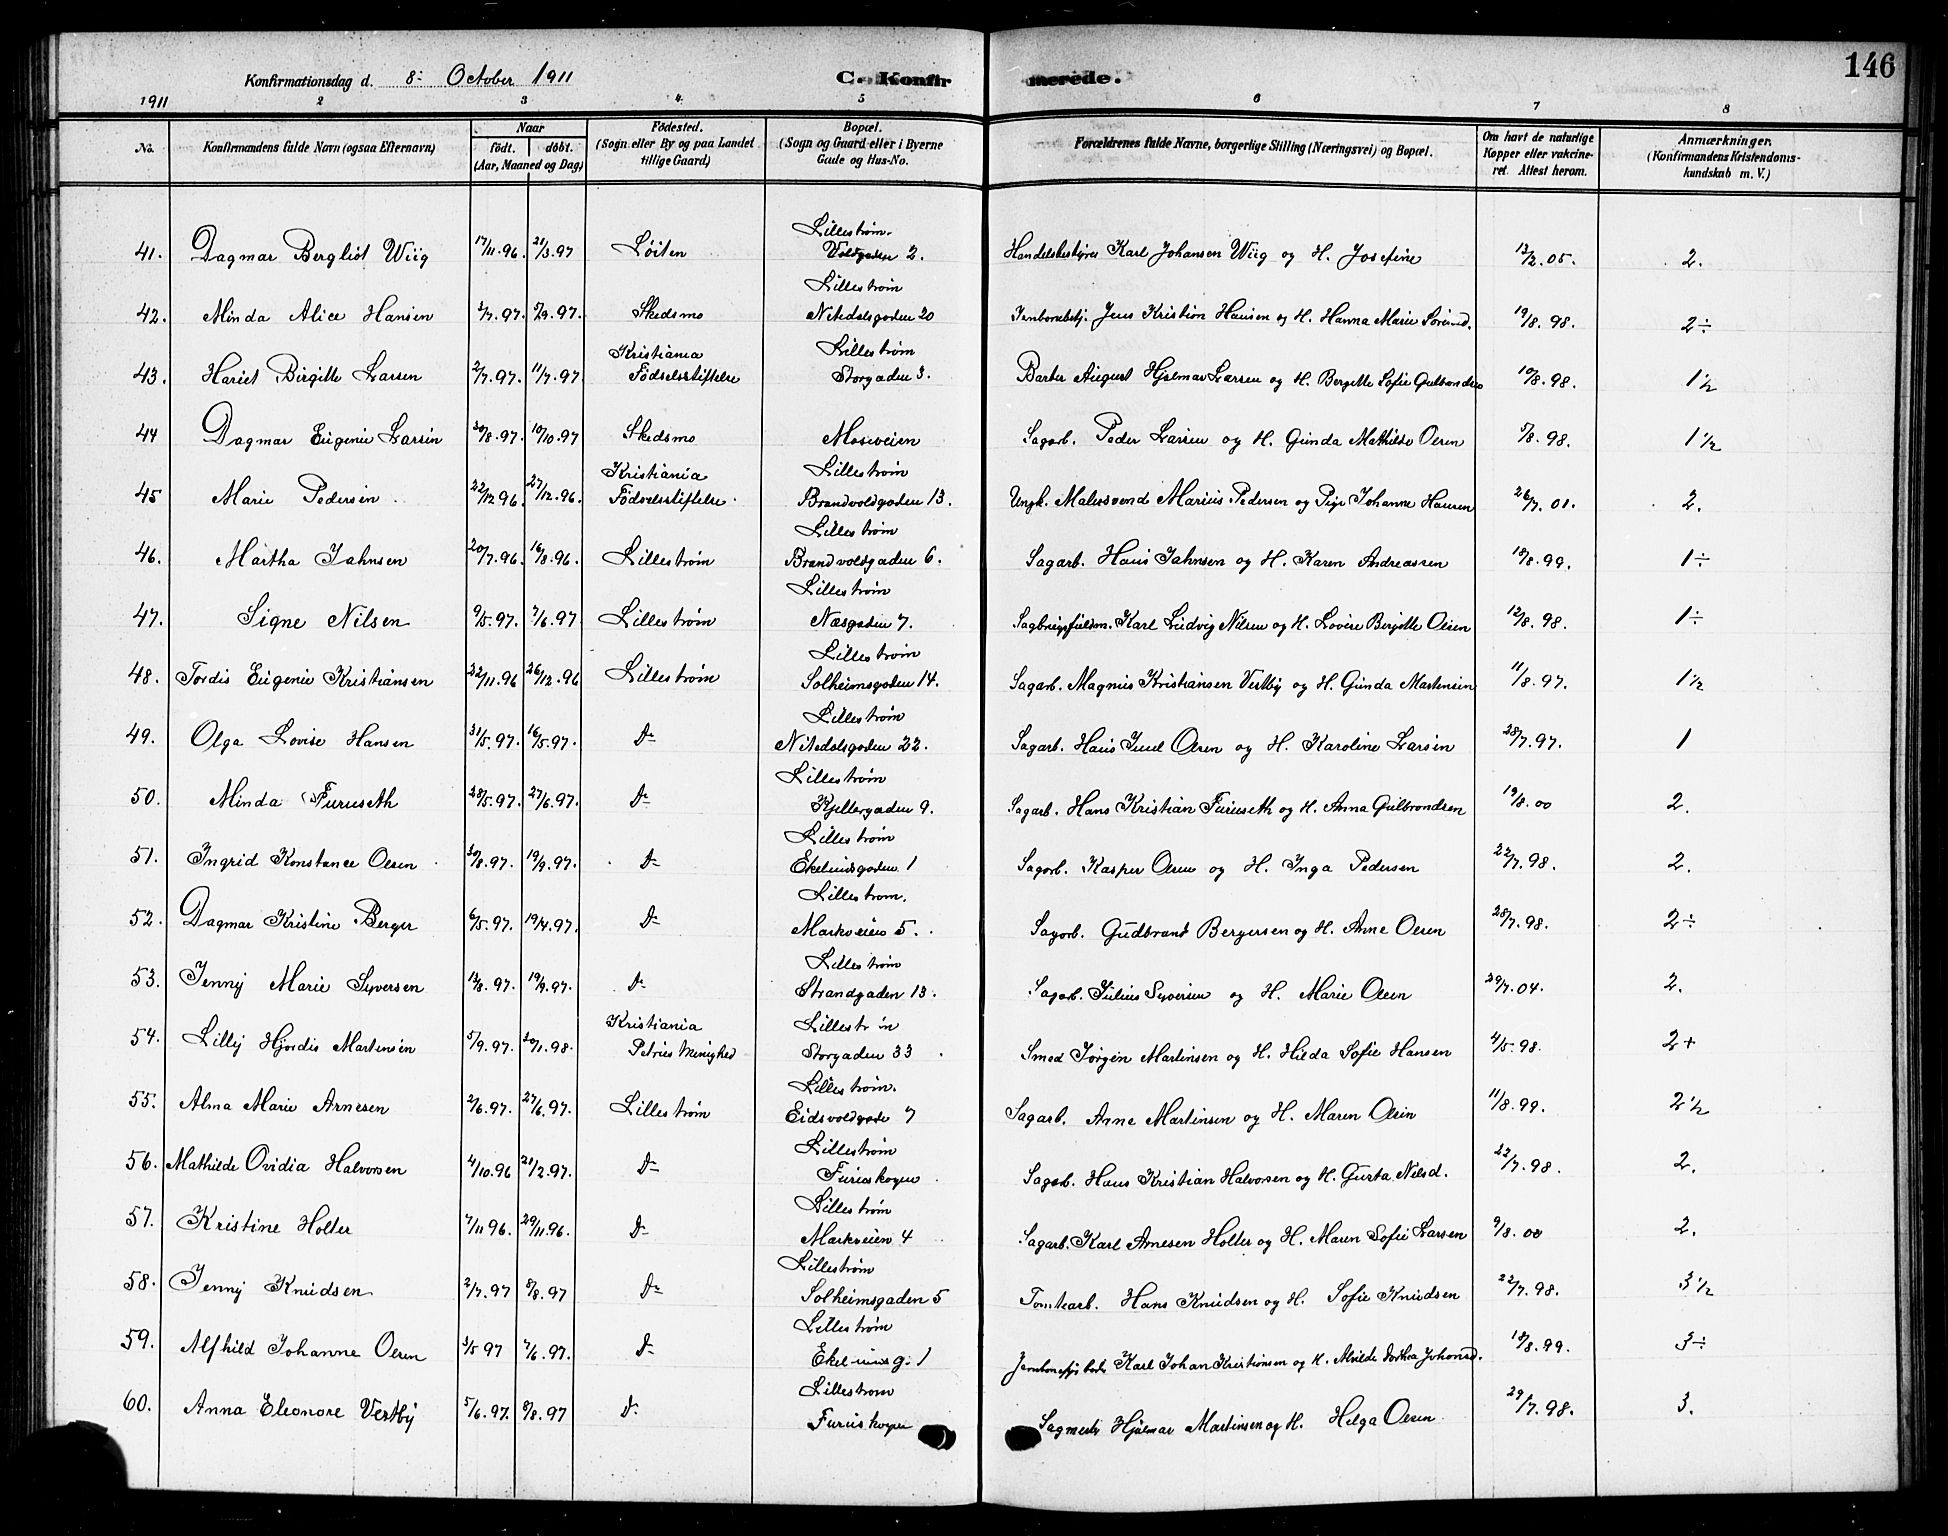 146
Konfirmationsdag d. 8. October 1911 C. Konfirmerede.
1911 2 3 4. 5 6 7 8
No. Konfirmandens fulde Navn (ogsaa Efternavn) Naar født. døbt. (Aar, Maaned og Dag) Fødested. (Sogn eller By og paa Landet tillige Gaard) Bopæl. (Sogn og Gaard eller i Byerne Gade og Hus-No. Forældrenes fulde Navne, borgerlige Stilling (Næringsvei) og Bopæl. Om havt de naturlige Kopper eller vakcineret. Attest herom. Anmærkninger. (Konfirmandens Kristendomskundskab m. V.)
Lillestrøm.
41. Dagmar Bergliot Wiig 17/11.96. 21/3.97 Løiten Voldgaden 2. Handelsbestyrer Karl Johansen Wiig og H. Josefine 12/2.05. 2.
Lillestrøm
42. Minda Alice Hansen 3/7.97. 5/9.97. Skedsmo Nitedalsgaden 20 Jens Kristian Hansen og H. Hanna Marie 19/8.98. 2÷
Kristiania Lillestrøm
43. Hariet Birgitte Larsen 2/7.97. 11/7.97. Fødselsstiftelse Storgaden 3. Barber August Hjalmar Larsen og H. Bergitte Sofie Gulbrandsen 19/8.98. 1½
44 Dagmar Eugenie Larsen 30/8.97. 10/10.97 Skedsmo Moseveien Sagarb. Peder Larsen og H. Gunda Mathilde Olsen 5/8.98. 1½
Kristiania Lillestrøm
45 Marie Pedersen 22/12.96. 27/12.96. Fødselsstiftelse. Brandvoldgaden 13. Ungk. Malersvend Marius Pedersen og Pige Johanne Hansen 26/7.01. 2.
Lillestrøm
46. Martha Jahnsen 20/7.96. 16/8.96. Lillestrøm Brandvoldgaden 6. Sagarb. Hans Jahnsen og H. Karen Andreassen 18/8.99. 1÷
Lillestrøm
47. Signe Nilsen 9/5.97. 7/6.97 Lillestrøm Næsgaden 7. Karl Ludvig Nilsen og H. Lovise Bergitte Olsen 12/8.98. 1÷
Lillestrøm
48. Tordis Eugenie Kristiansen 22/11.96 26/12.96 Lillestrøm Solheimsgaden 14. Sagarb. Magnus Kristiansen Vestby og H. Gunda Martinsen 11/8.97. 1½
Lillestrøm
49. Olga Lovise Hansen 31/5.97. 16/5.97. Do Nitedalsgaden 22. Sagarb. Hans Juul Olsen og H. Karoline Larsen 28/7.97. 1
Lillestrøm
50. Minda Furuseth 28/5.97. 27/6.97. Do Kjellergaden 9. Sagarb. Hans Kristian Furuseth og H. Anna Gulbrandsen 19/8.00 2.
Lillestrøm
51. Ingrid Konstance Olsen 30/8.97. 19/9.97. Do Ekelundsgaden 1 Sagarb. Kasper Olsen og H. Inga Pedersen 22/7.98. 2.
Lillestrøm.
52. Dagmar Kristine Berger 6/5.97. 19/4.97. Do Markveien 5. Sagarb. Gudbrand Bergersen og H. Anne Olsen 28/7.98. 2÷
Lillestrøm
53. Jenny Marie Syversen 12/8.97. 19/9.97. Do Strandgaden 13. Sagarb. Julius Syversen og H. Marie Olsen 29/7.04. 2.
Kristiania Lillestrøm
54. Lilly Hjørdis Martinsen 5/9.97. 30/1.98. Petrus Menighed Storgaden 33 Smed Jørgen Martinsen og H. Hilda Sofie Hansen 4/5.98. 2+
Lillestrøm.
55. Alma Marie Arnesen 2/6.97. 27/6.97. Lillestrøm Eidsvoldgade 7 Sagarb. Arne Martinsen og H. Maren Olsen 11/8.99. 2½
Lillestrøm
56. Mathilde Ovidia Halvorsen 4/10.96 21/2.97. Do Furuskogen Sagarb. Hans Kristian Halvorsen og H. Gurta Nilsd. 22/7.98. 2.
Lillestrøm
57. Kristine Holter 7/11.96. 29/11.96. Do Markveien 4 Sagarb. Karl Arnesen Holter og H. Maren Sofie Larsen 9/8.00 2.
Lillestrøm
58. Jenny Knudsen 2/7.97 8/8.97 Do Solheimsgaden 5 Tomtearb. Hans Knudsen og H. Sofie Knudsen 22/7.98. 3½
Lillestrøm
59. Alfhild Johanne Olsen 3/5 97 7/6.97. Do Ekelundsg. 1 Karl Johan Kristiansen og H. Alvilde Dorthea Johansd. 18/8.99. 3÷
Lillestrøm
60. Anna Eleonore Vestby 5/6.97. 8/8.97 Do Furuskogen Sagmester Hjalmar Martinsen og H. Helga Olsen 29/7.98. 3.